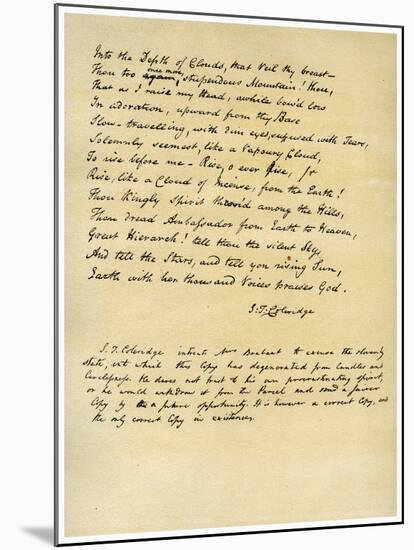 Into the Depth of Clouds, that veil thy breast—
Thou too again, once more, stupendous Mountain! thou,
That as I raise my Head, awhile bow'd low
In adoration, upward from thy Base
Slow-travelling, with dim eyes suffused with Tears,
Solemnly seemest, like a Vapoury Cloud,
To rise before me — Rise, o ever Rise,
Rise, like a Cloud of Incense, from the Earth!
Thou Kingly Spirit thron'd among the Hills,
Thou dread Ambassador from Earth to Heaven,
Great Hierarch! tell thou the silent Sky,
And tell the Stars, and tell yon rising Sun,
Earth with her thousand Voices praises God.
S. T. Coleridge
S. T. Coleridge intreats Mrs Brabant to excuse the slovenly
state, into which this Copy has degenerated from Candles and
Carelessness. He dares not trust to his own procrastinating spirit,
or he would withdraw it from the Parcel and send a fairer
Copy by a future opportunity. It is however a correct Copy, and
the only correct Copy in existence.